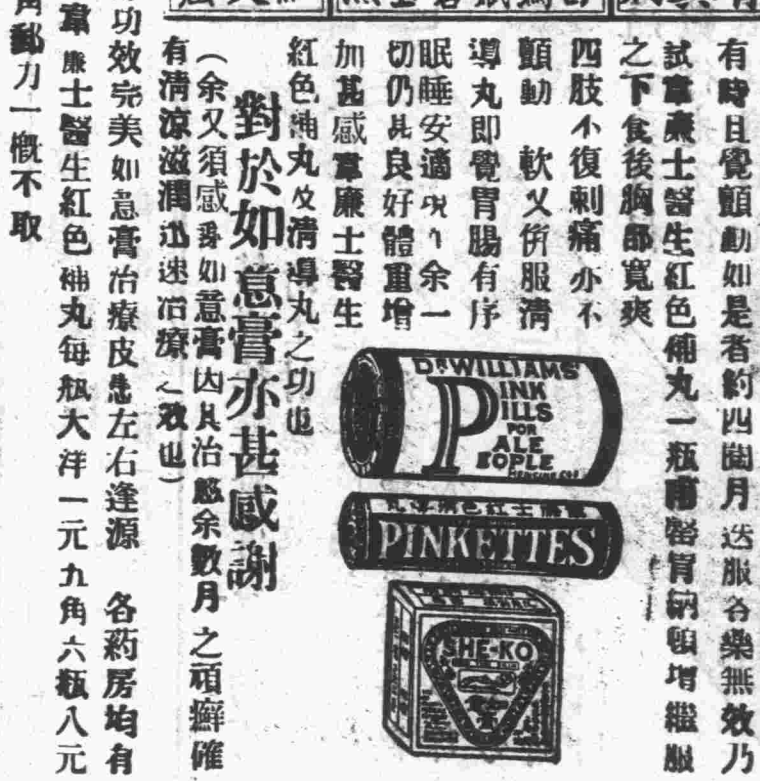 有時且覺顫動如是者約四閱月迭服各藥無效乃
試韋廉士醫生紅色補丸一瓶甫罄胃納頓增繼服
之下食後胸部寬爽
四肢不復刺痛亦不
顫動 軟又服清
導丸即覺胃腸有序
眠睡安適 余一
切仍其良好體重增
加甚感韋廉士醫生
紅色補丸及清導丸之功也
對於如意膏亦甚感謝
(余又須感謝如意膏因其治愈余數月之頑癬確
有清涼滋潤迅速治療之效也)
功效完美如意膏治療皮患左右逢源 各藥房均有
韋廉士醫生紅色補丸每瓶大洋一元九角六瓶八元
角郵力一概不取
DR WILLIAMS'
PINK
PILLS
FOR
PALE
PEOPLE
MEDICINE CO.
丸導清色紅士廉韋
PINKETTES
SHE-KO